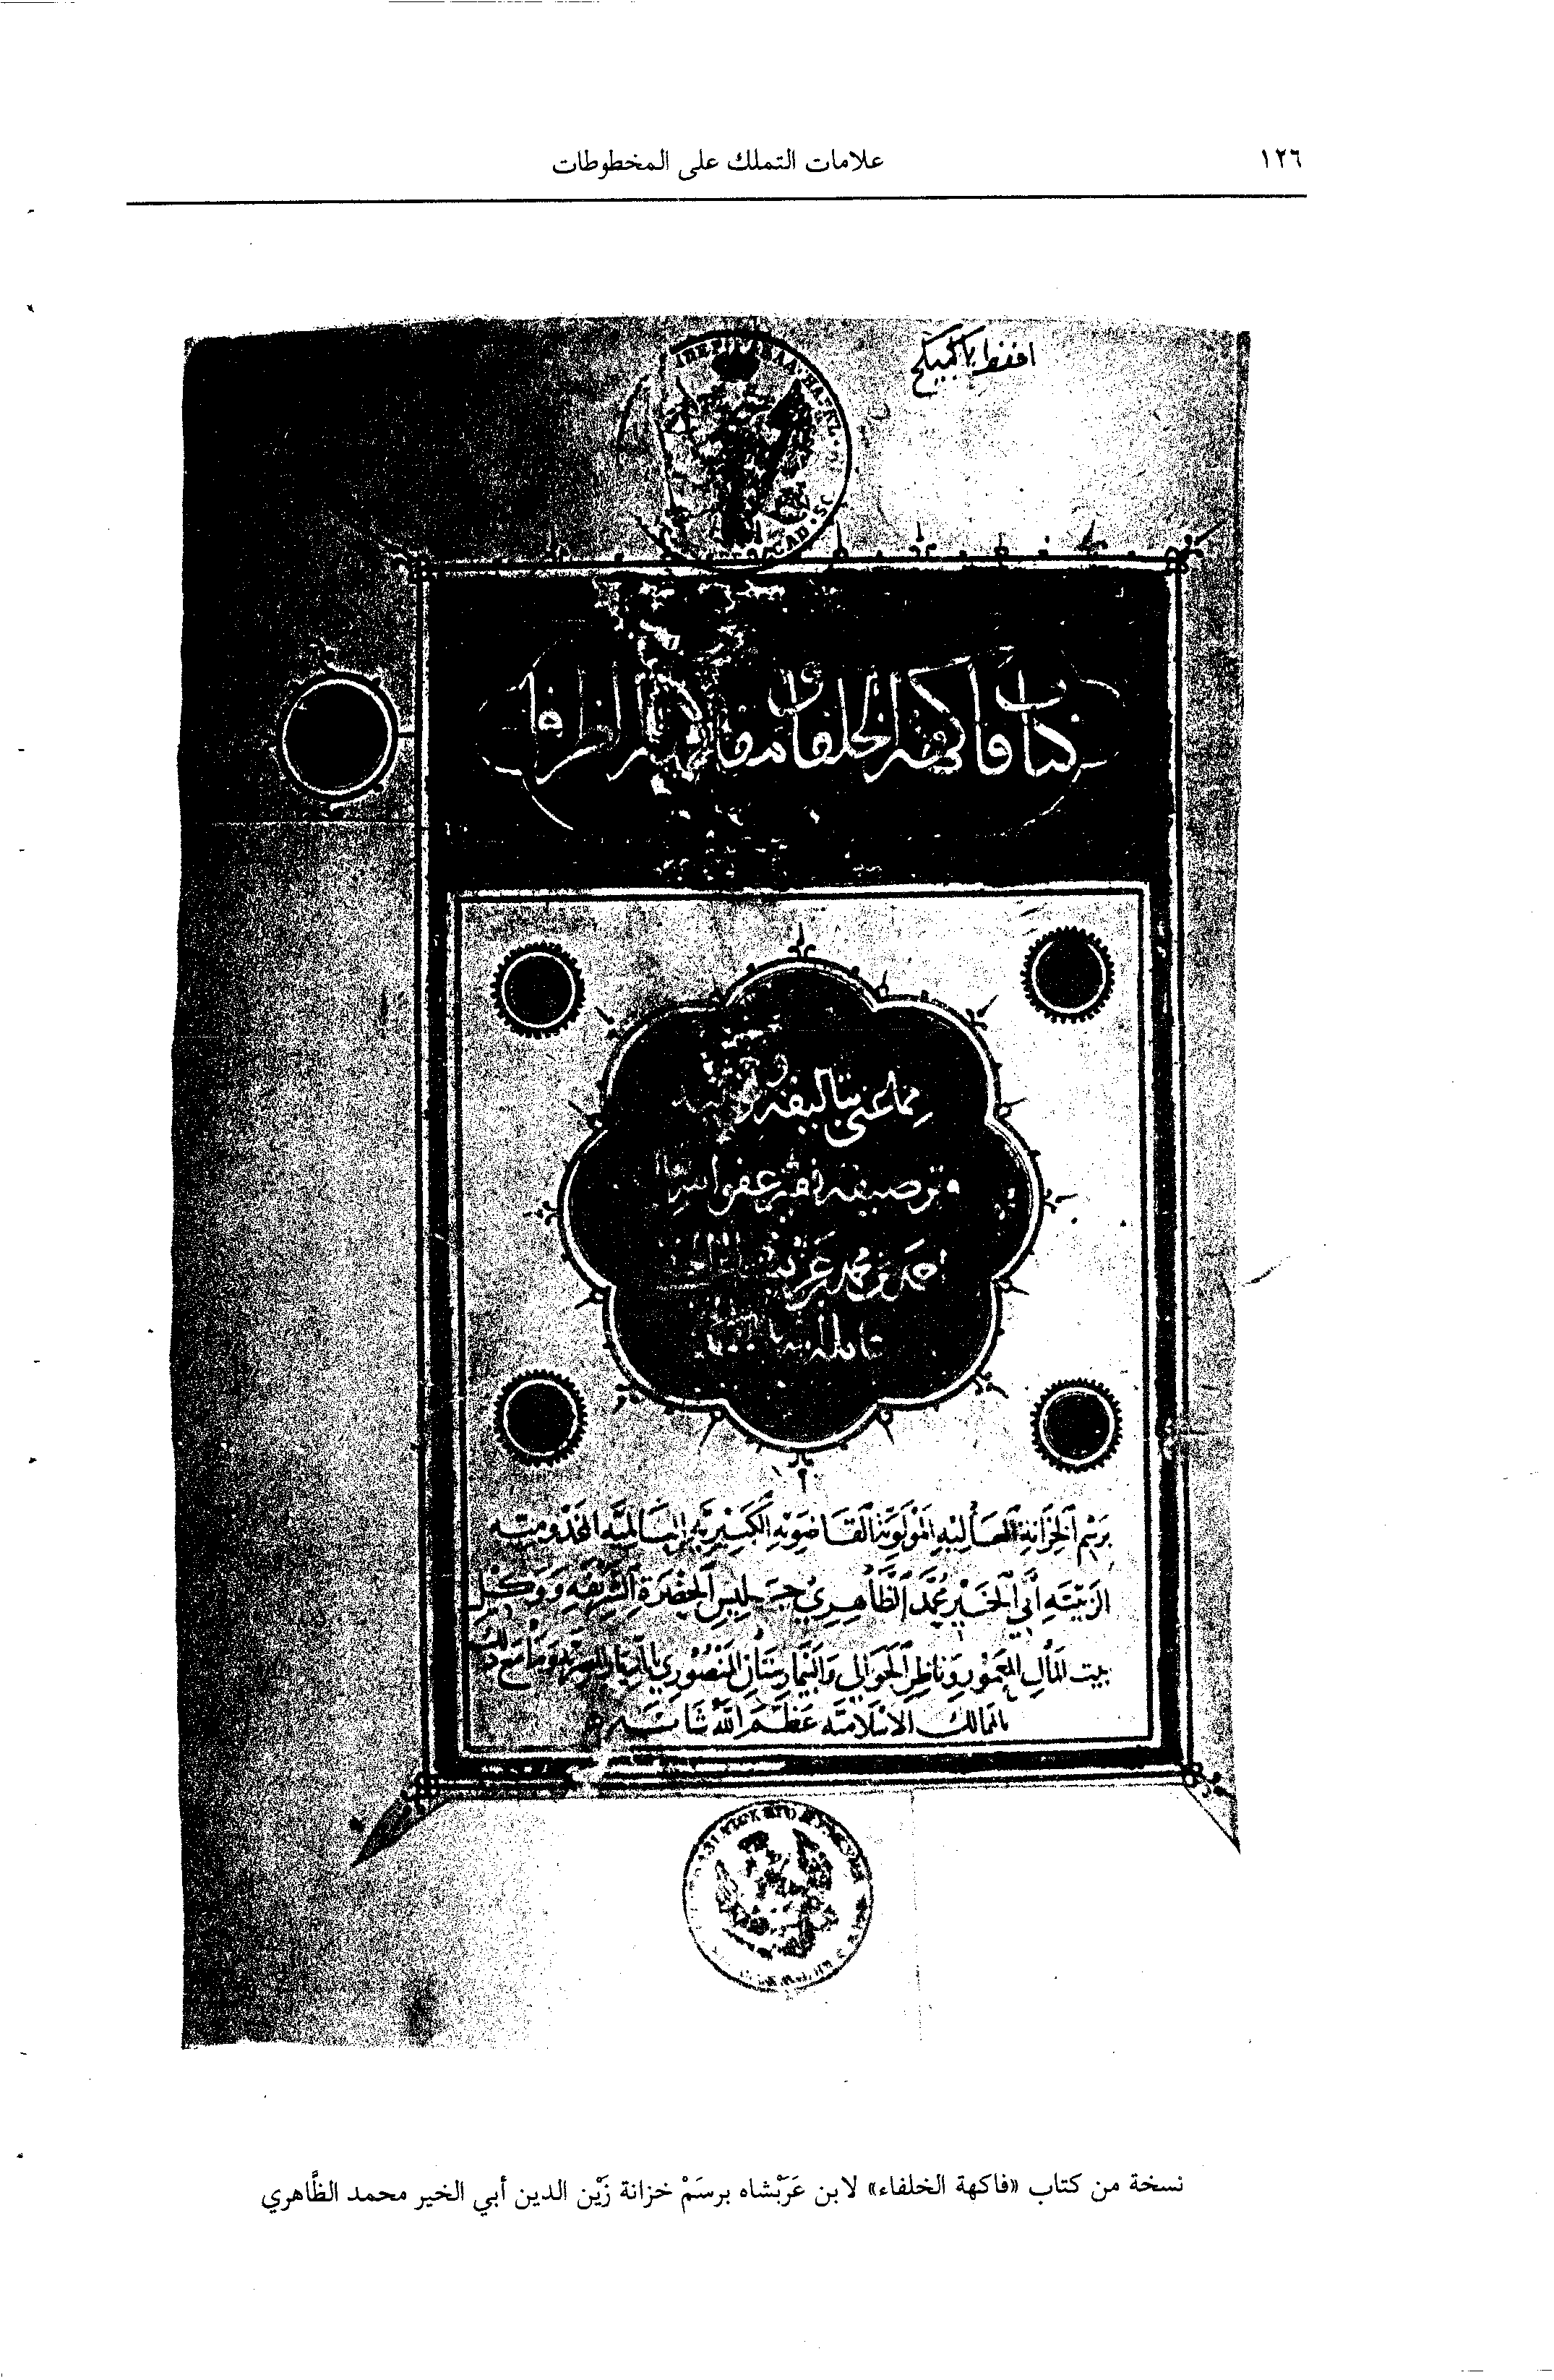 ١٢٦
علامات التملك على المخطوطات
كتاب فاكهة الخلفا ومفاكهة الظرفا
مما عنى بتاليفه
وترصيفه فقير عفو الله
احمد بن محمد عربشاه
برسم الخزانة العاليه المولويه القاضويه الكبيريه العالميه المخدوميه
الزينيه أبي الخير محمد الظاهري جليس الحضرة الشريفه ووكيل
بيت المال المعمور وناظر الجوالي والبيمارستان المنصوري بالديار المصريه وما مع ذلك
بالممالك الاسلاميه عظم الله شانه
نسخة من كتاب «فاكهة الخلفاء» لابن عَرَبْشاه برسَمْ خزانة زَيْن الدين أبي الخير محمد الظَّاهري